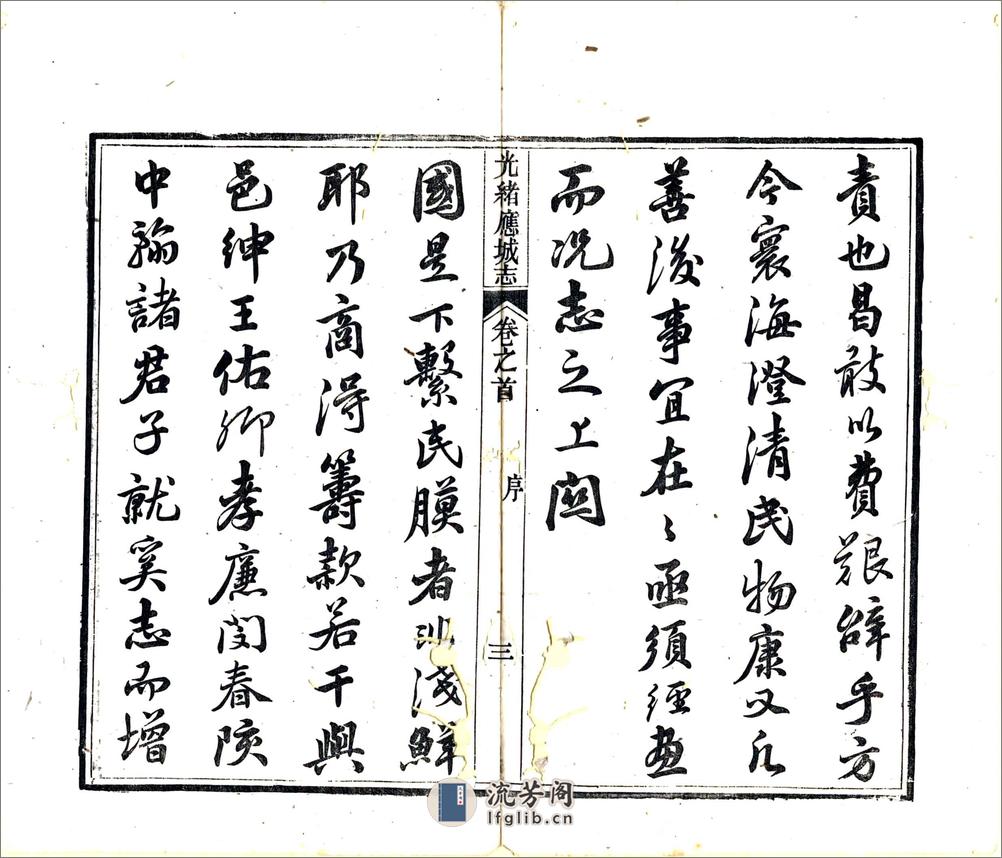 責也曷敢以費艱辭乎方
今寰海澄清民物康乂凡
善後事宜在〻亟須經畫
而况志之上関
光緒應城志 卷之首 序 三
國是下繫民膜者非淺鮮
耶乃商淂籌款若干與
邑紳王佑卿孝廉閔春陔
中翰諸君子就奚志而增
流芳阁
lfglib.cn